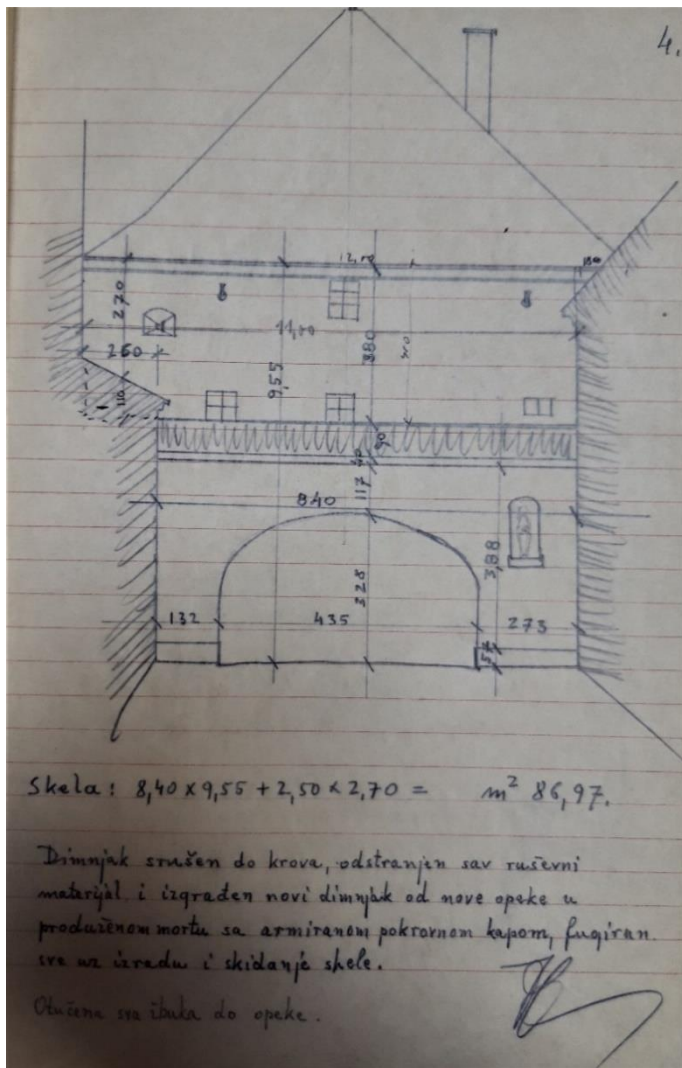 4.
12,10
130
270
11,00
260
955
380
110
90
40
117
840
328
3,88
132
435
273
57
Skela: 8,40 x 9,55 + 2,50 x 2,70 = m² 86,97.
Dimnjak srušen do krova, odstranjen sav ruševni
materijal i izgrađen novi dimnjak od nove opeke u
produženom mortu sa armiranom pokrovnom kapom, fugiran
sve uz izradu i skidanje skele.
Otučena sva žbuka do opeke.